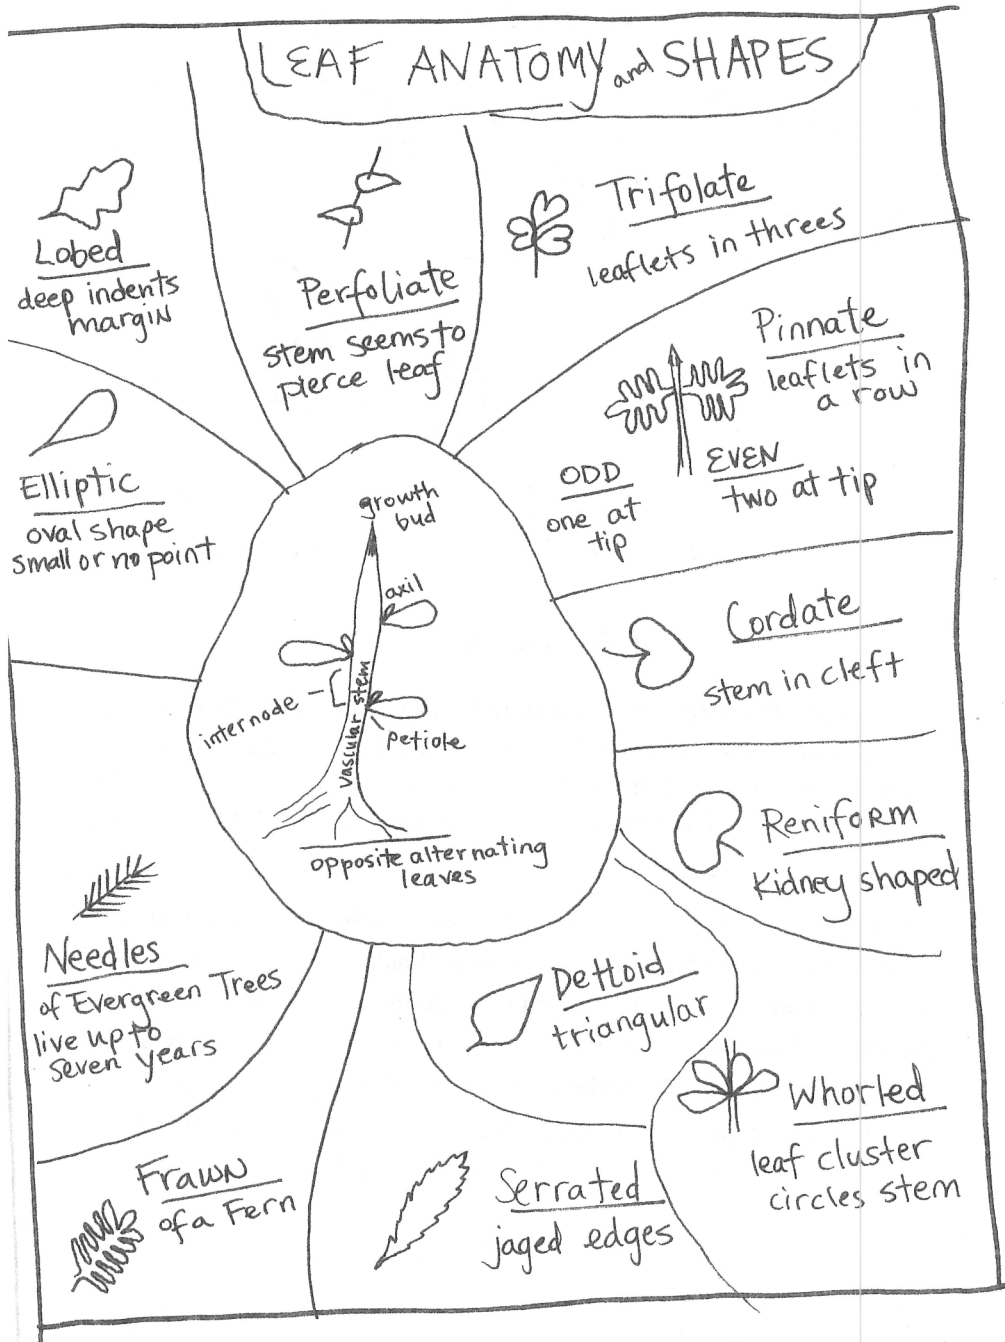 LEAF ANATOMY and SHAPES
Lobed
deep indents
margin
Perfoliate
stem seems to
pierce leaf
Trifolate
leaflets in threes
Pinnate
leaflets in
a row
ODD
one at
tip
EVEN
two at tip
Elliptic
oval shape
small or no point
growth
bud
axil
internode
vascular stem
petiole
opposite alternating
leaves
Cordate
stem in cleft
Reniform
Kidney shaped
Needles
of Evergreen Trees
live up to
seven years
Deltoid
triangular
Whorled
leaf cluster
circles stem
Frawn
of a Fern
Serrated
jaged edges